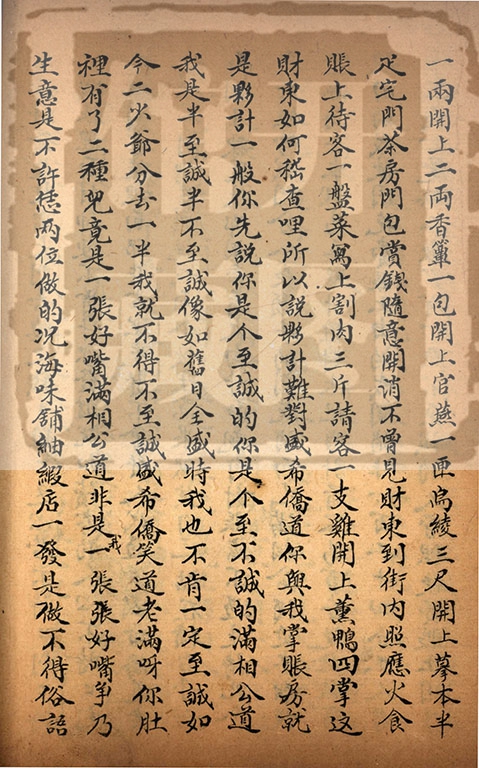 一兩開上二両香蕈一包開上官燕一匣烏綾三尺開上摹本半
疋宅門茶房門包賞錢隨意開消不曾見財東到街內照應火食
賬上待客一盤菜寫上割肉三斤請客一支雞開上薰鴨四掌這
財東如何稽查哩所以說夥計難對盛希僑道你與我掌賬房就
是夥計一般你先説你是个至誠的你是个至不誠的滿相公道
我是半至誠半不至誠像如舊日全盛時我也不肯一定至誠如
今二少爺分去一半我就不得不至誠盛希僑笑道老滿呀你肚
裡有了二種皃竟是一張好嘴滿相公道非是我一張張好嘴爭乃
生意是不許恁両位做的况海味舖紬緞店一發是做不得俗語